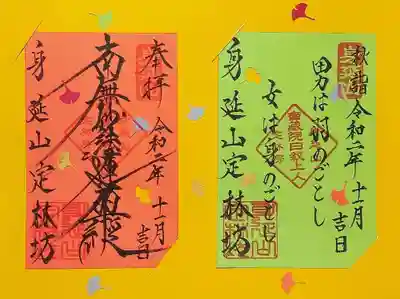 奉拝
令和二年十一月吉日
南無妙法蓮華経
身延山定林坊
秋詣
令和二年十一月吉日
男は羽のごとし
女は身のごとし
身延山定林坊